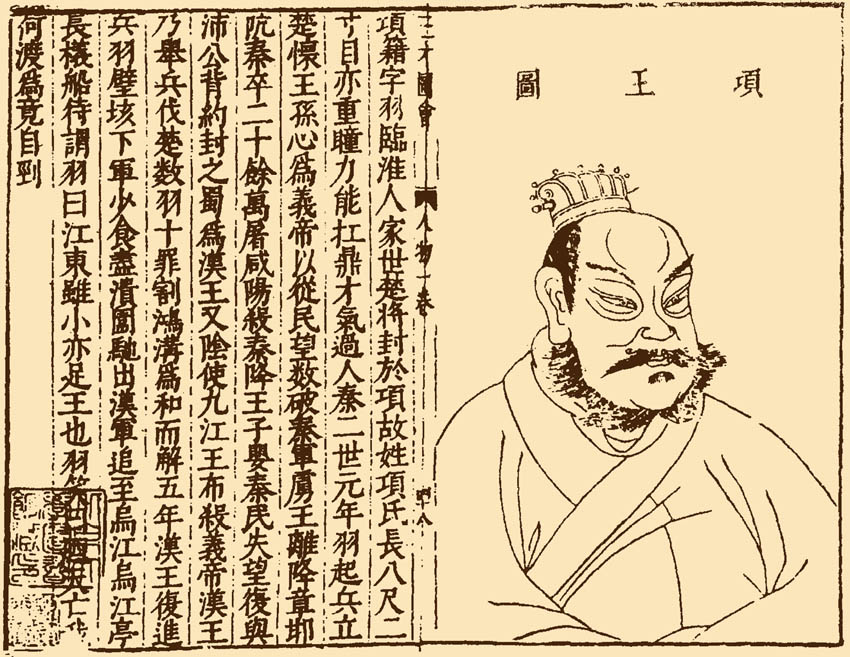 項王圖
三才圖會 人物一卷
項籍字羽臨淮人家世楚將封於項故姓項氏長八尺二
寸目亦重瞳力能扛鼎才氣過人秦二世元年羽起兵立
楚懷王孫心爲義帝以從民望数破秦軍虜王離降章邯
阬秦卒二十餘萬屠咸陽殺秦降王子嬰秦民失望復與
沛公背約封之蜀爲漢王又陰使九江王布殺義帝漢王
乃舉兵伐楚数羽十罪割鴻溝爲和而解五年漢王復進
兵羽壁垓下軍少食盡潰圍馳出漢軍追至烏江烏江亭
長檥船待謂羽曰江東雖小亦足王也羽笑曰亡
何渡爲竟自剄